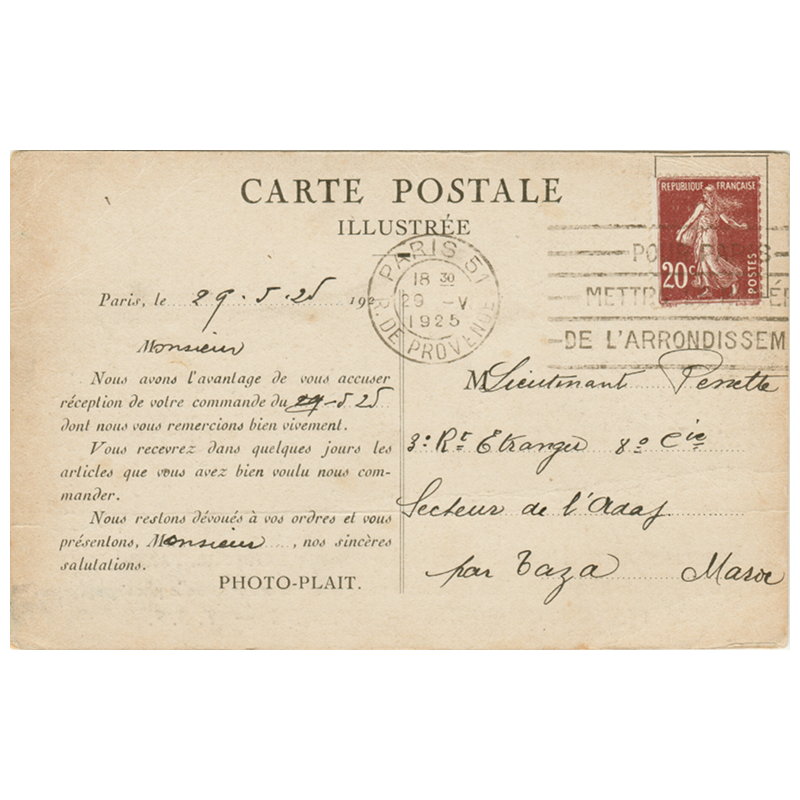 CARTE POSTALE
ILLUSTRÉE
REPUBLIQUE FRANÇAISE
20c POSTES
PARIS 51
18 30
29 - V
1925
R. DE PROVENCE
PARIS
METTR
DE L'ARRONDISSEM
Paris, le 29.5.25 192
Monsieur
Nous avons l'avantage de vous accuser
réception de votre commande du 29-5 25
dont nous vous remercions bien vivement.
Vous recevrez dans quelques jours les
articles que vous avez bien voulu nous com-
mander.
Nous restons dévoués à vos ordres et vous
présentons, Monsieur, nos sincères
salutations.
PHOTO-PLAIT.
M Lieutenant
3e Rt Etranger 8e Cie
Secteur de l'
par Taza Maroc